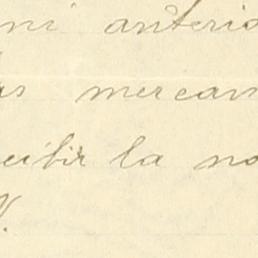 mi anterio
as mercan
ecibir la no
V.